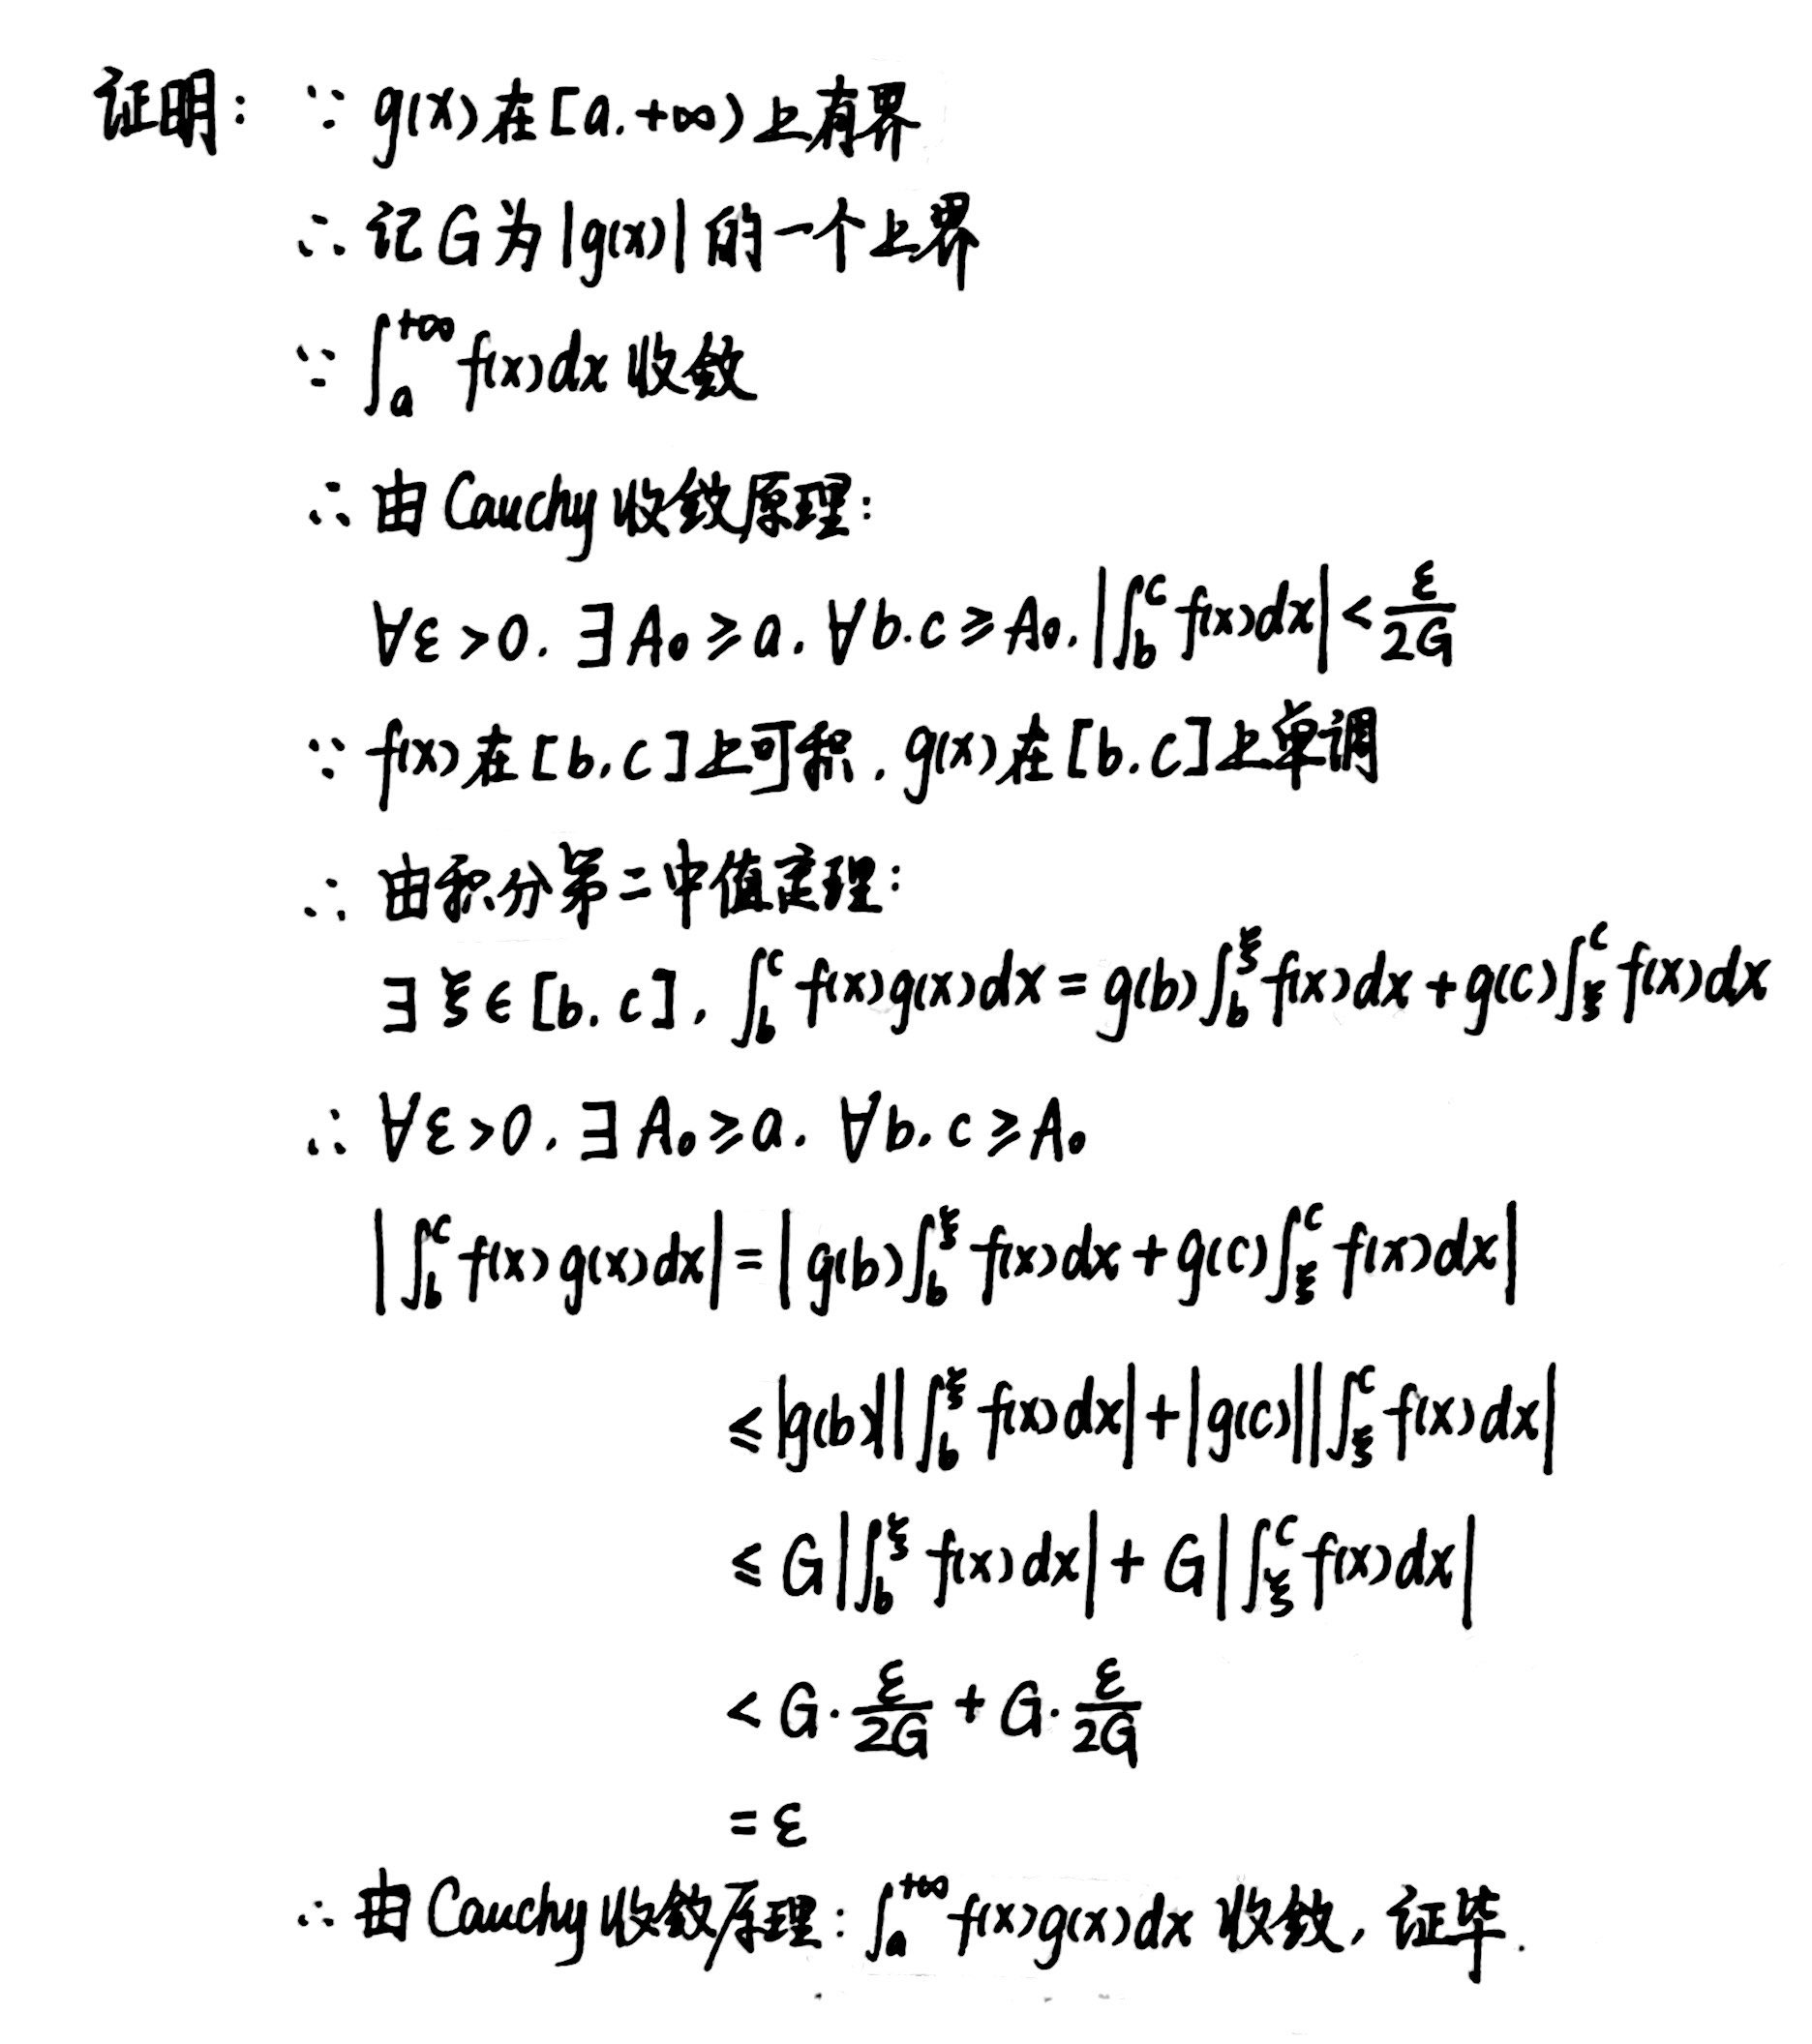 证明: ∵ g(x)在[a.+∞)上有界
∴ 记G为|g(x)|的一个上界
∵ ∫_a^{+∞} f(x)dx 收敛
∴ 由Cauchy收敛原理:
∀ε>0. ∃A₀≥a. ∀b.c≥A₀. |∫_b^c f(x)dx| < ε/2G
∵ f(x)在[b,c]上可积, g(x)在[b.c]上单调
∴ 由积分第二中值定理:
∃ξ∈[b.c], ∫_b^c f(x)g(x)dx = g(b)∫_b^ξ f(x)dx + g(c)∫_ξ^c f(x)dx
∴ ∀ε>0. ∃A₀≥a. ∀b.c≥A₀
|∫_b^c f(x)g(x)dx| = |g(b)∫_b^ξ f(x)dx + g(c)∫_ξ^c f(x)dx|
≤ |g(b)||∫_b^ξ f(x)dx| + |g(c)||∫_ξ^c f(x)dx|
≤ G|∫_b^ξ f(x)dx| + G|∫_ξ^c f(x)dx|
< G·ε/2G + G·ε/2G
= ε
∴ 由Cauchy收敛原理: ∫_a^{+∞} f(x)g(x)dx 收敛, 证毕.